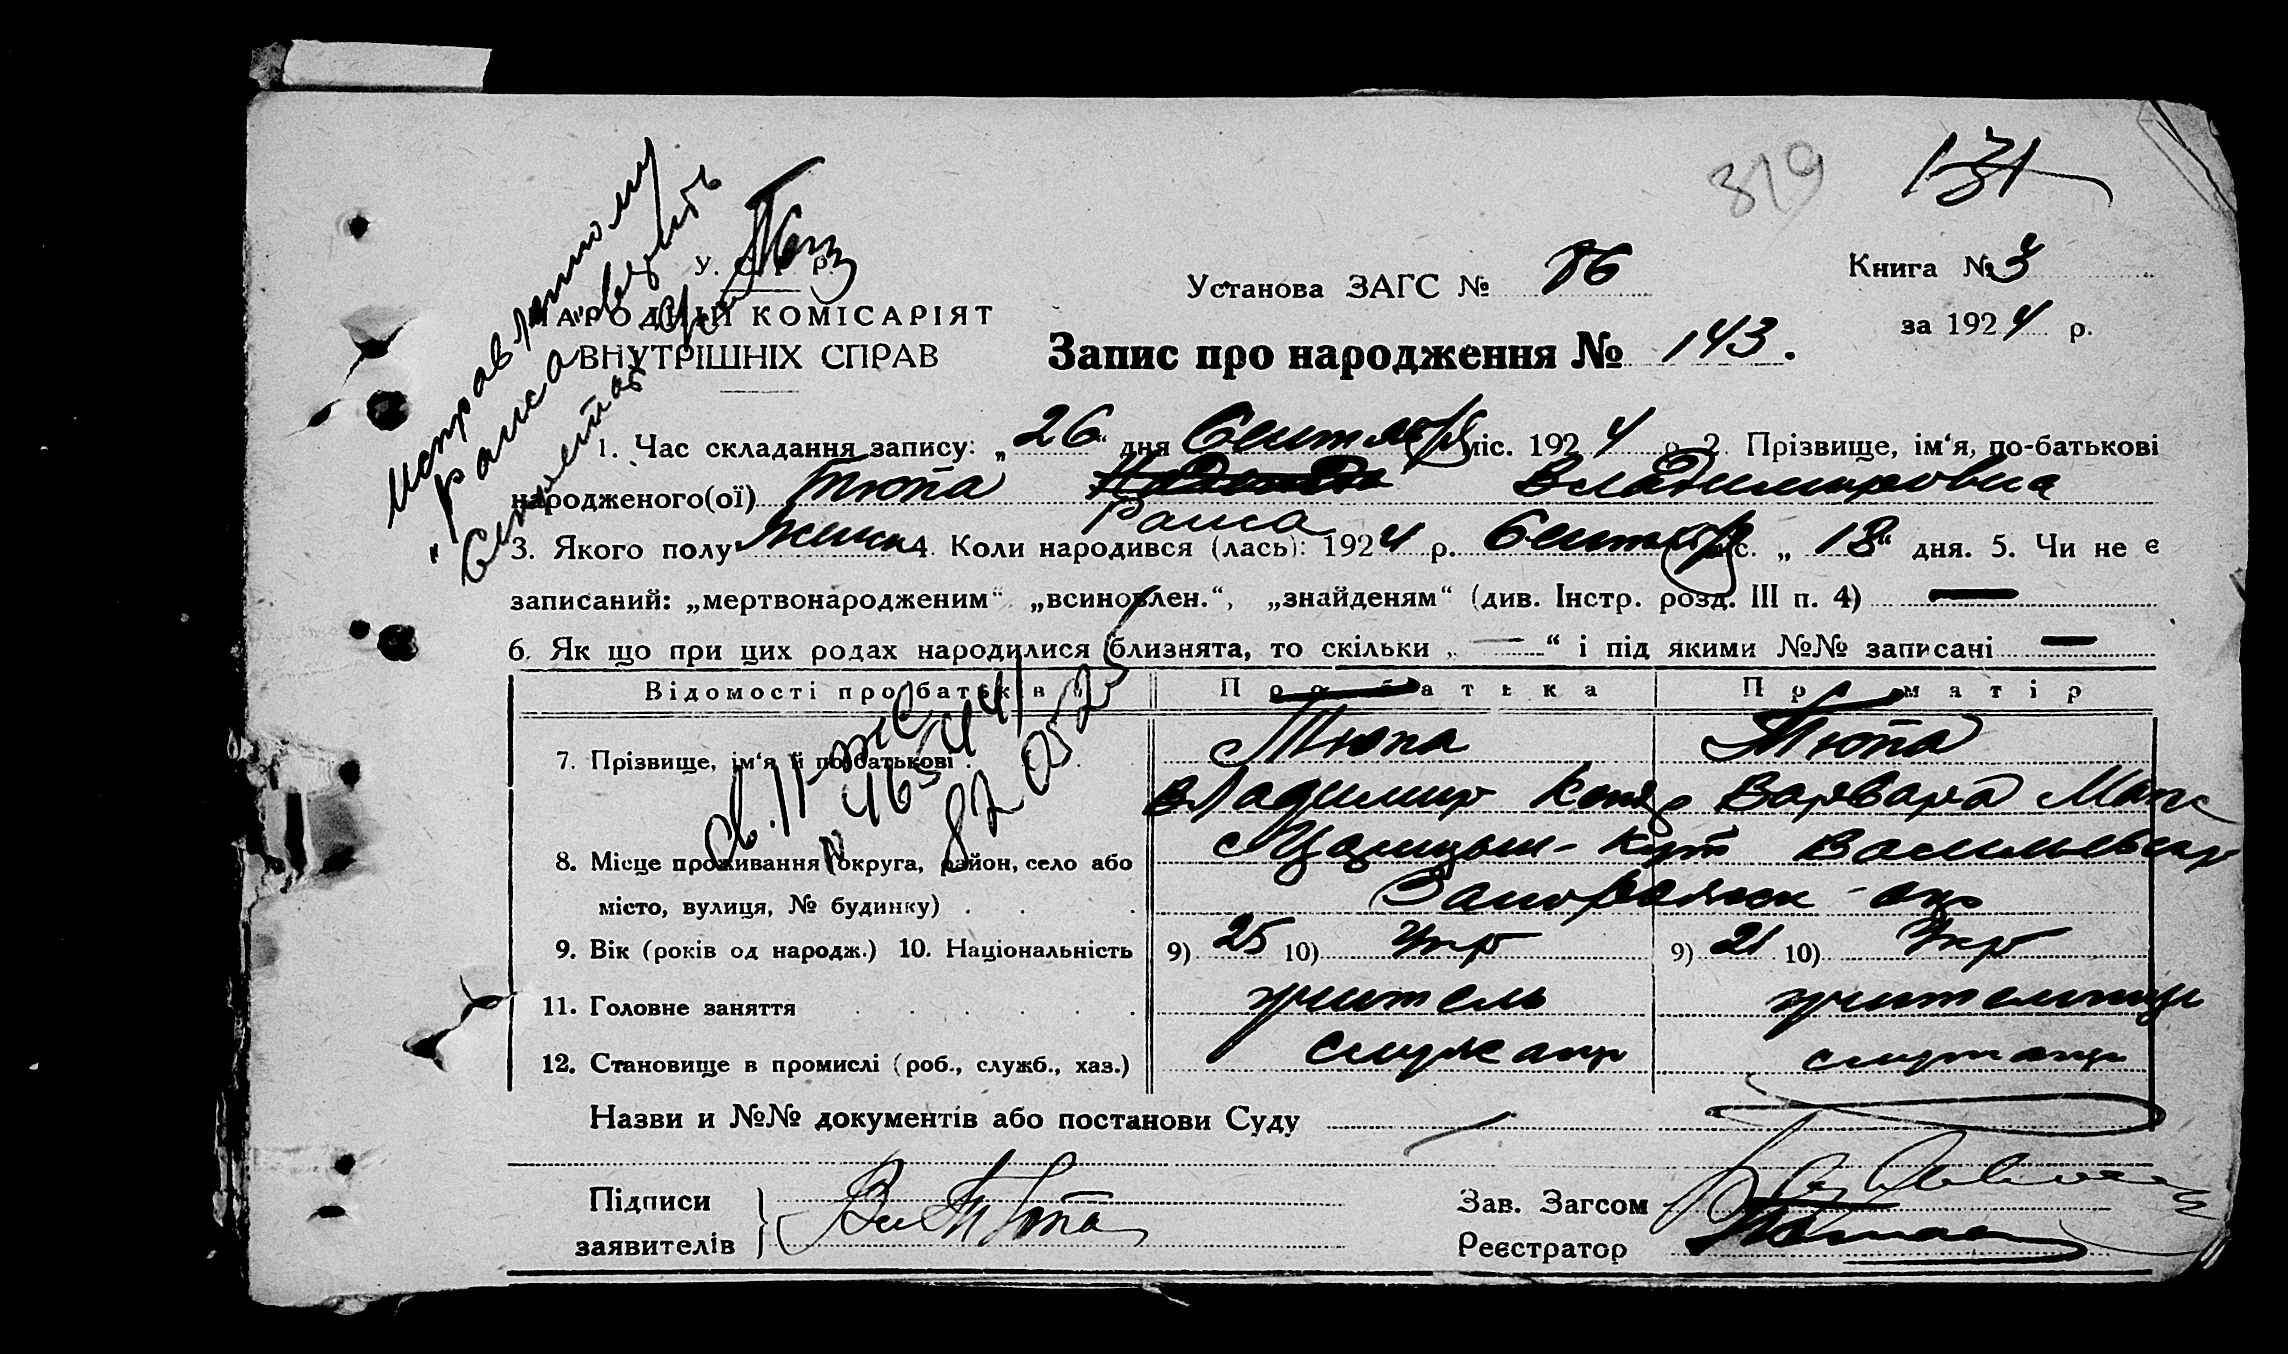 319
131
Исправленному
"Раиса" верить
У. С. Р. Р.
НАРОДНІЙ КОМІСАРІЯТ
ВНУТРІШНІХ СПРАВ
Установа ЗАГС № 86
Книга № 3
за 1924 р.
Запис про народження № 143.
1. Час складання запису: „26“ дня Сентября міс. 1924 р. 2. Прізвище, ім‘я, по-батькові
народженого(ої) Тюпа Владимировна
Раиса
3. Якого полу женск 4. Коли народився (лась): 1924 р. Сентября міс. „18“ дня. 5. Чи не є
записаний: „мертвонародженим“ „всиновлен.“, „знайденям“ (див. Інстр. розд. III п. 4) —
6. Як що при цих родах народилися близнята, то скільки „—“ і під якими №№ записані —
Відомості про батьків Про батька Про матір
7. Прізвище, ім‘я й по-батькові Тюпа Тюпа
Владимир Варвара
8. Місце проживання (округа, район, село або Царицын-Кут Васильевск
місто, вулиця, № будинку) Запорожск - окр
9. Вік (років од народж.) 10. Національність 9) 25 10) Укр 9) 21 10) Укр
11. Головне заняття учитель учительница
12. Становище в промислі (роб., служб., хаз.) служащ служащ
Назви и №№ документів або постанови Суду
Підписи
заявителів
Тюпа
Зав. Загсом
Реєстратор